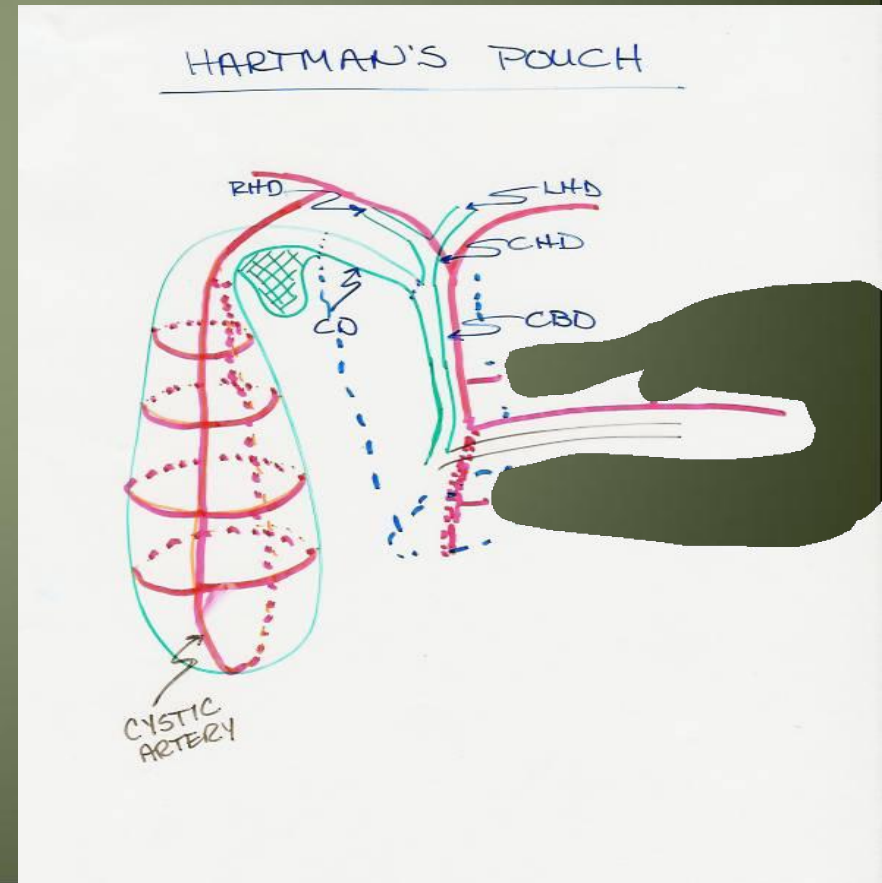 HARTMAN'S POUCH
RHD
LHD
CHD
CBD
CD
CYSTIC
ARTERY